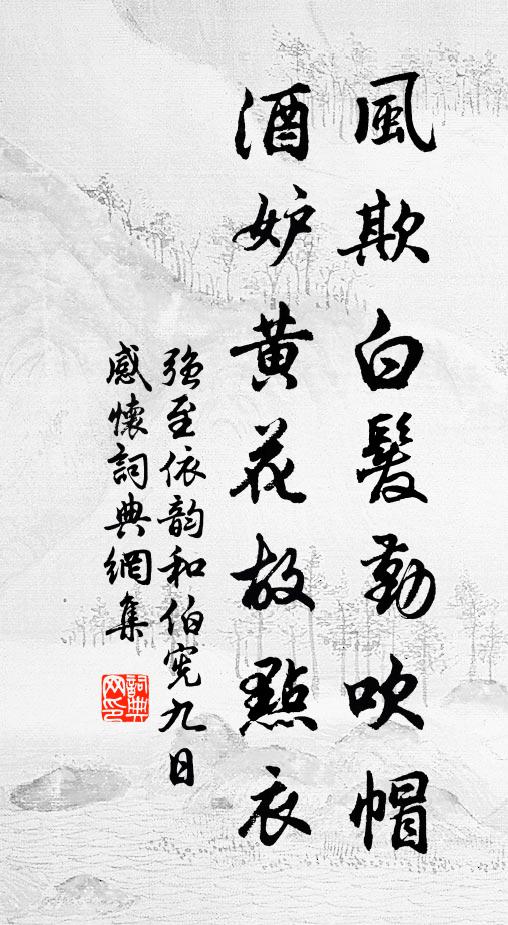 風欺白髮勤吹帽
酒妒黃花故點衣
強至依韵和伯宪九日
感懷詞典網集
詞典网印